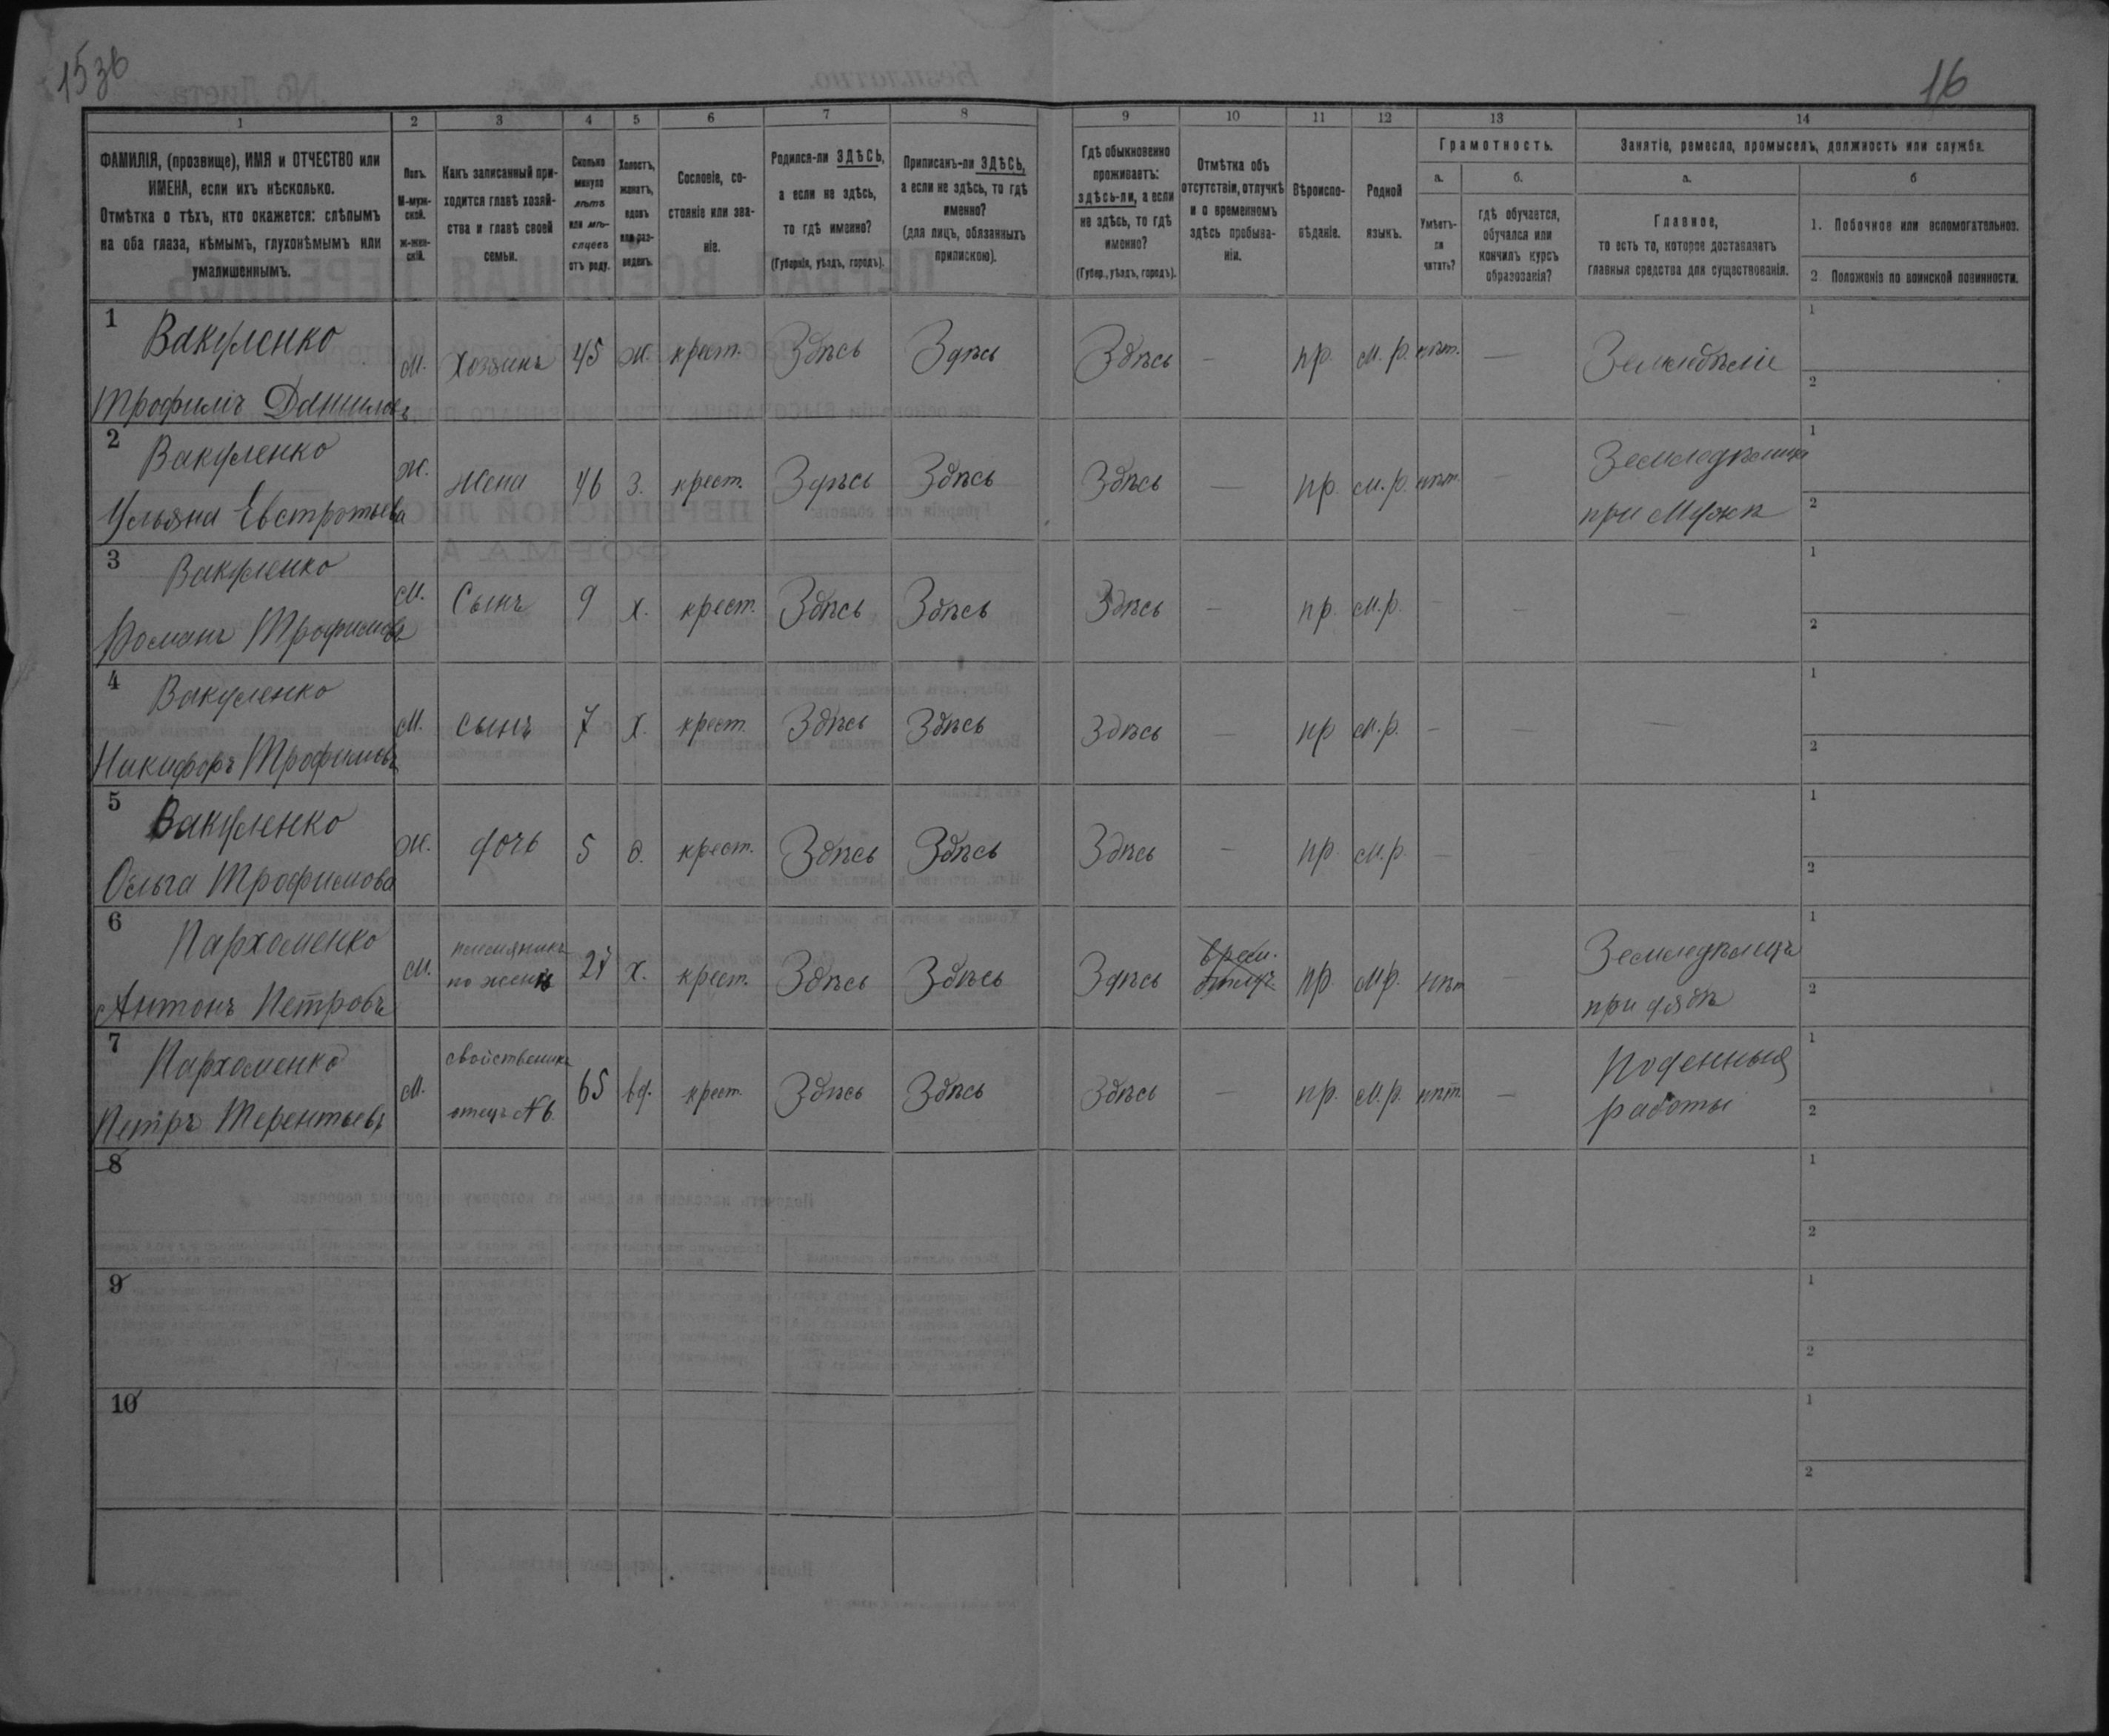 153б
16
1
2
3
4
5
6
7
8
9
10
11
12
13
14
ФАМИЛІЯ, (прозвище), ИМЯ и ОТЧЕСТВО или
ИМЕНА, если ихъ нѣсколько.
Отмѣтка о тѣхъ, кто окажется: слѣпымъ
на оба глаза, нѣмымъ, глухонѣмымъ или
умалишеннымъ.
Полъ.
М-муж-
ской.
Ж-жен-
скій.
Какъ записанный при-
ходится главѣ хозяй-
ства и главѣ своей
семьи.
Сколько
минуло
лѣтъ
или мѣ-
сяцевъ
отъ роду.
Холостъ,
женатъ,
вдовъ
или раз-
веденъ.
Сословіе, со-
стояніе или зва-
ніе.
Родился-ли ЗДѢСЬ,
а если не здѣсь,
то гдѣ именно?
(Губернія, уѣздъ, городъ).
Приписанъ-ли ЗДѢСЬ,
а если не здѣсь, то гдѣ
именно?
(для лицъ, обязанныхъ
припискою).
Гдѣ обыкновенно
проживаетъ:
здѣсь-ли, а если
не здѣсь, то гдѣ
именно?
(Губер., уѣздъ, городъ).
Отмѣтка объ
отсутствіи, отлучкѣ
и о временномъ
здѣсь пребыва-
ніи.
Вѣроиспо-
вѣданіе.
Родной
языкъ.
Грамотность.
а.
Умѣетъ-
ли
читать?
б.
гдѣ обучается,
обучался или
кончилъ курсъ
образованія?
Занятіе, ремесло, промыселъ, должность или служба.
а.
Главное,
то есть то, которое доставляетъ
главныя средства для существованія.
б
1. Побочное или вспомогательное.
2 Положеніе по воинской повинности.
1 Вакуленко
Трофимъ Даниловъ
м. Хозяинъ 45 ж. крест. Здѣсь Здѣсь Здѣсь — пр. м. р. нѣт. — Земледѣліе
1
2
2 Вакуленко
Ульяна Евстратьева
ж. Жена 46 з. крест. Здѣсь Здѣсь Здѣсь — пр. м. р. нѣт. — Земледѣлица
при Мужѣ
1
2
3 Вакуленко
Романъ Трофимовъ
м. Сынъ 9 х. крест. Здѣсь Здѣсь Здѣсь — пр. м.р. — — —
1
2
4 Вакуленко
Никифоръ Трофимовъ
м. сынъ 7 х. крест. Здѣсь Здѣсь Здѣсь — пр м.р. — — —
1
2
5 Вакуленко
Ольга Трофимова
ж. дочь 5 д. крест. Здѣсь Здѣсь Здѣсь — пр. м.р. — — —
1
2
6 Пархоменко
Антонъ Петровъ
м. племянникъ
по женѣ
27 х. крест. Здѣсь Здѣсь Здѣсь врем.
пр. м р. нѣт — Земледѣлецъ
при дядѣ
1
2
7 Пархоменко
Петръ Терентьевъ
м. свойственникъ
отецъ №6.
65 вд. крест. Здѣсь Здѣсь Здѣсь — пр. м.р. нѣт. — Поденныя
работы
1
2
8
1
2
9
1
2
10
1
2